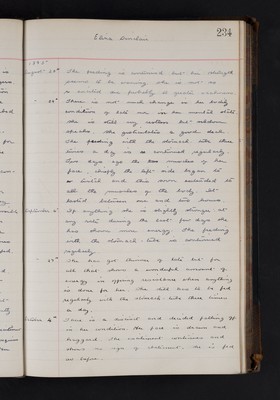 234
1895
August The feeding is continued but her strength
seems to be waning she is not so
There is not much change in her bodily
condition of late nor her mental state
she is still very restless but seldom
speaks. She gesticulates a good deal.
The feeding with the stomach tube three
times a day is continued regularly.
Two days ago the muscles of her
face, chiefly the left side began to
twitch and this soon extended to
all the muscles of the body. It
lasted between one and two hours.
September If anything she is slightly stronger at
any rate during the last few days she
has shown more energy. The feeding
with the stomach tube is continued
regularly.
She has got thinner of late but for
all that shows a wonderful amount of
energy in offering resistance when anything
is done for her. She still has to be fed
regularly with the stomach tube three times
a day.
October There is a marked and decided falling off
in her condition. Her face is drawn and
haggard. The excitement continues and
shows no sign of abatement. She is fed
as before.